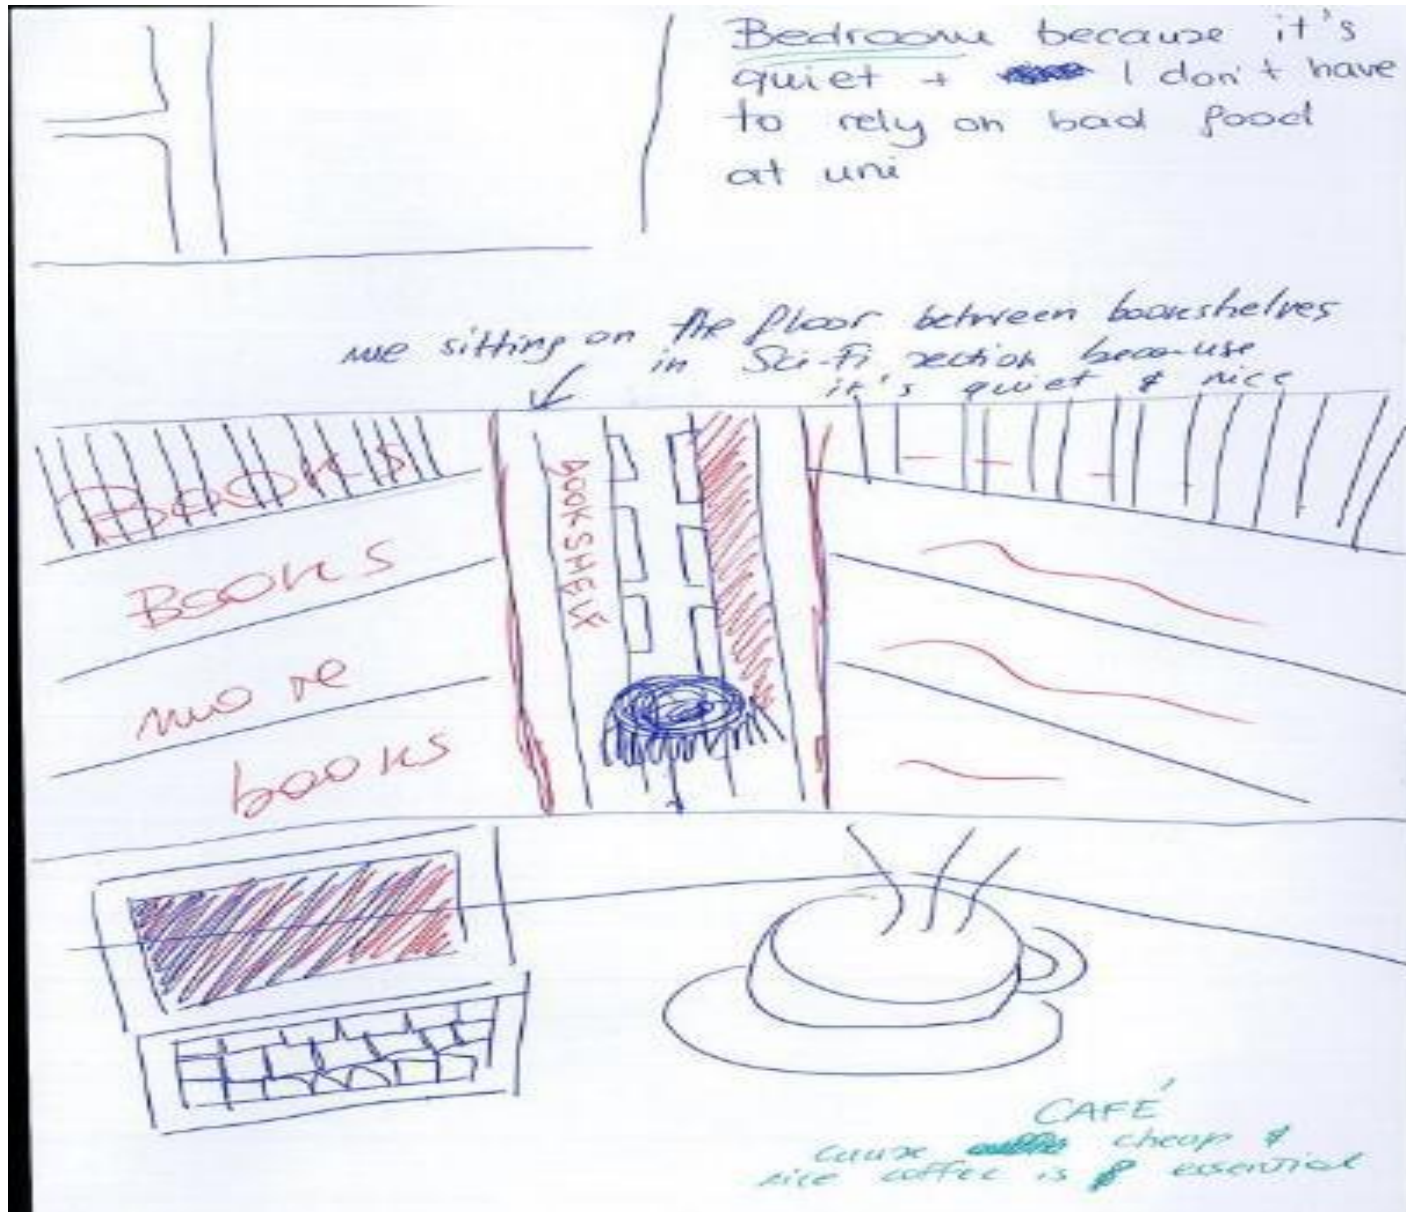 Bedroom because it's
quiet + I don't have
to rely on bad food
at uni
me sitting on the floor between bookshelves
in Sci-Fi section because
it's quiet & nice
BOOKS
BOOKS
more
books
BOOKSHELF
CAFÉ
cause cheap &
nice coffee is essential